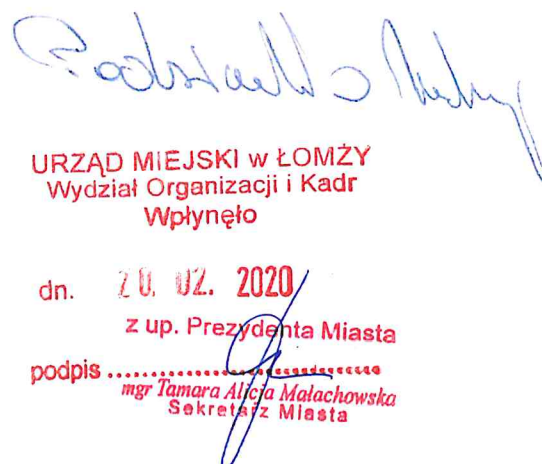 URZĄD MIEJSKI w ŁOMŻY
Wydział Organizacji i Kadr
Wpłynęło
dn. 20. 02. 2020
z up. Prezydenta Miasta
podpis ....................................
mgr Tamara Alicja Małachowska
Sekretarz Miasta